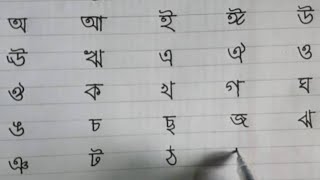 অ আ ই ঈ উ
ঊ ঋ এ ঐ ও
ঔ ক খ গ ঘ
ঙ চ ছ জ ঝ
ঞ ট ঠ